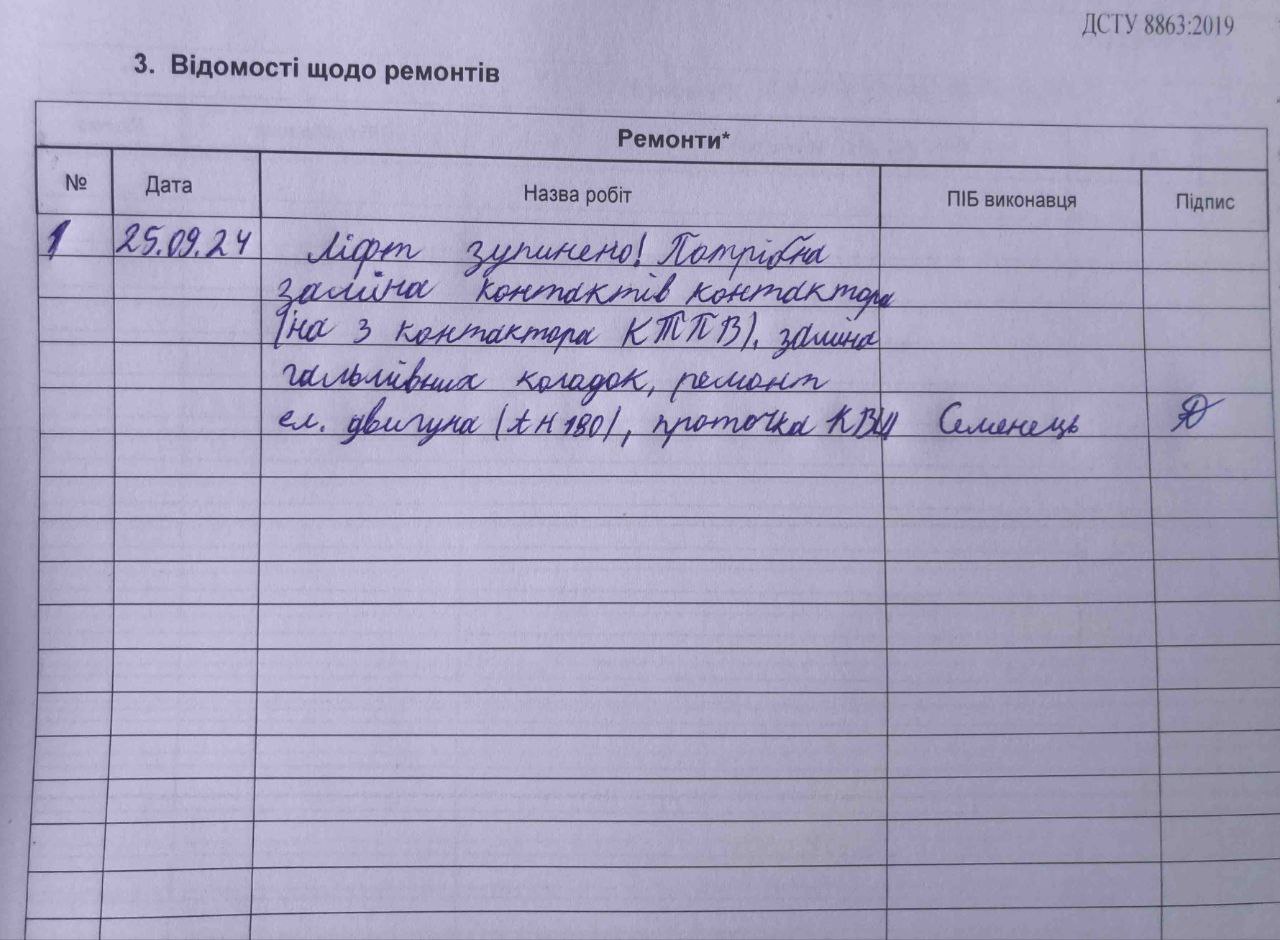 ДСТУ 8863:2019
3. Відомості щодо ремонтів
Ремонти*
№ Дата Назва робіт ПІБ виконавця Підпис
1 25.09.24 Ліфт зупинено! Потрібна
заміна контактів контактора
(на 3 контактора КТПВ), заміна
гальмівних колодок, ремонт
ел. двигуна (АН 180), проточка КВШ Семенець